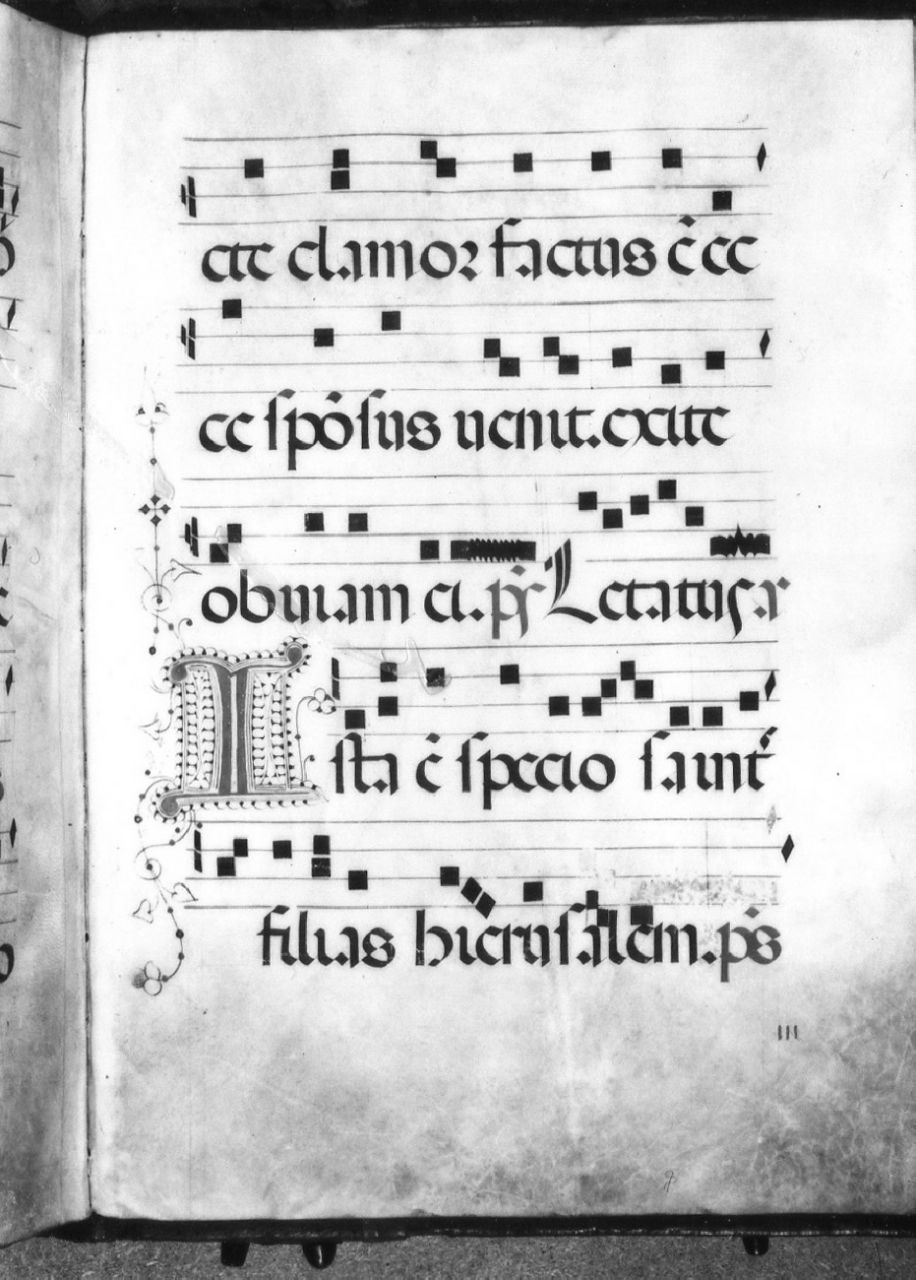 cte clamor factus ē ec
ce spōsus uenit. exite
obuiam ei. ps̄ Letatus
Ista ē specio sa int̄
filias hierusalem. ps̄
III